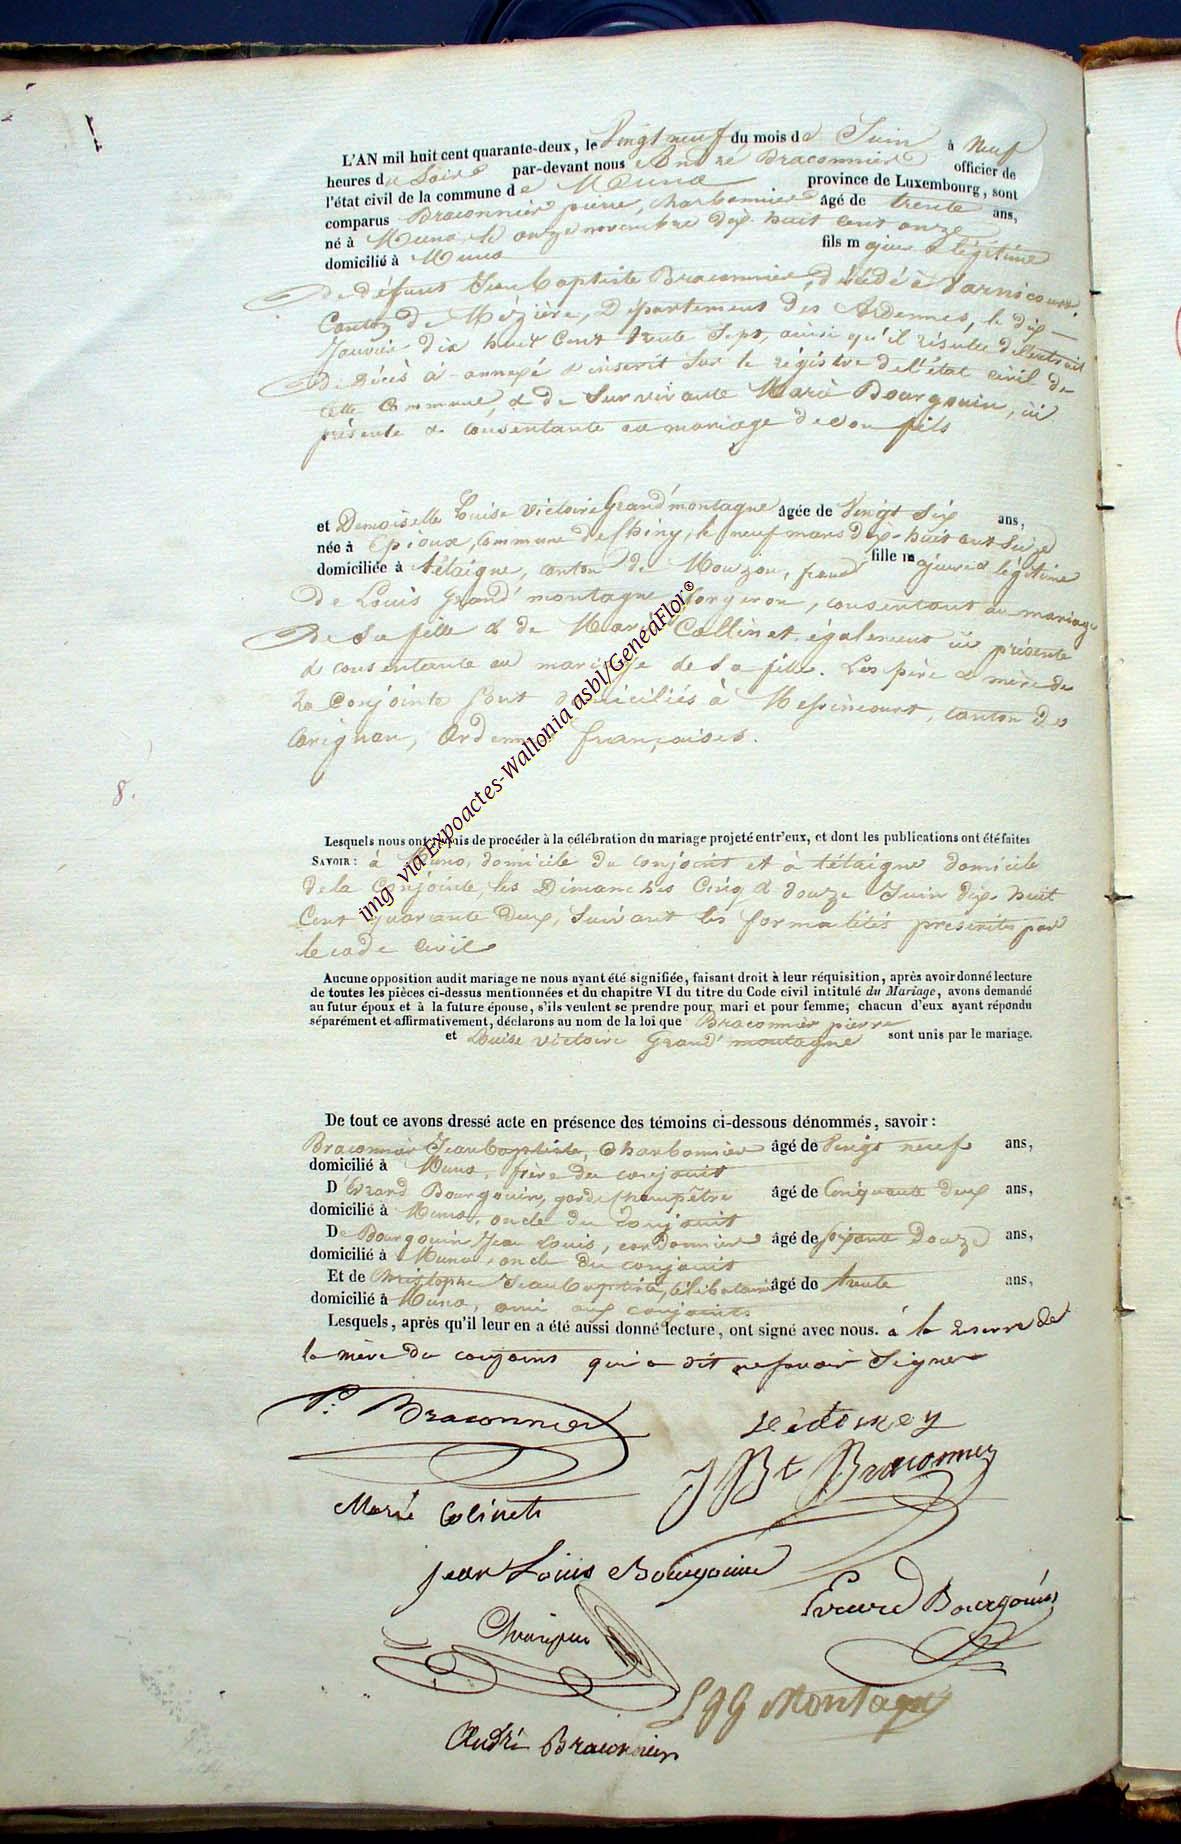 L'AN mil huit cent quarante-deux, le Vingt neuf du mois de Juin à Neuf
heures du Soir par-devant nous André Braconnier officier de
l'état civil de la commune de Muno province de Luxembourg, sont
comparus Braconnier pierre, charbonnier âgé de trente ans,
né à Muno, le onze novembre dix huit cent onze
domicilié à Muno fils majeur & légitime
De défunt Jean baptiste Braconnier, décédé à Varnicourt,
Canton de Mézière, Département des Ardennes, le dix
Janvier dix huit Cent trente Sept, ainsi qu'il résulte de l'extrait
De Décès ci-annexé & inscrit Sur le régistre de l'état civil de
cette Commune, & de Survivante Marie Bourgouin, ici
présente & consentante au mariage de son fils
et Demoiselle Louise Victoire Grand'montagne âgée de Vingt Six ans,
née à Epioux, Commune de Chiny, le neuf mars dix-huit cent Seize
domiciliée à tétaigne, canton de Mouzon, france fille majeure & légitime
De Louis Grand'montagne forgeron, consentant au mariage
De Sa fille & de Marie Collinet également ici présente
& consentante au mariage de Sa fille. Les père & mère de
La Conjointe Sont domiciliés à Messincourt, canton de
Carignan, Ardennes françaises.
8.
Lesquels nous ont requis de procéder à la célébration du mariage projeté entr'eux, et dont les publications ont été faites
SAVOIR : à Muno, domicile du conjoint et à tétaigne domicile
de la Conjointe, les Dimanches Cinq & douze Juin dix huit
Cent quarante deux, Suivant les formalités prescrites par
le code Civil
Aucune opposition audit mariage ne nous ayant été signifiée, faisant droit à leur réquisition, après avoir donné lecture
de toutes les pièces ci-dessus mentionnées et du chapitre VI du titre du Code civil intitulé du Mariage, avons demandé
au futur époux et à la future épouse, s'ils veulent se prendre pour mari et pour femme; chacun d'eux ayant répondu
séparément et affirmativement, déclarons au nom de la loi que Braconnier pierre
et Louise Victoire Grand'montagne sont unis par le mariage.
De tout ce avons dressé acte en présence des témoins ci-dessous dénommés, savoir :
Braconnier Jean baptiste, charbonnier âgé de Vingt neuf ans,
domicilié à Muno, frère du conjoint
D'Evrard Bourgouin, garde champêtre âgé de Cinquante deux ans,
domicilié à Muno, oncle du Conjoint
De Bourgouin Jean Louis, cordonnier âgé de soixante Douze ans,
domicilié à Muno, oncle du conjoint
Et de Christophe Jean baptiste, célibataire âgé de trente ans,
domicilié à Muno, ami aux conjoints.
Lesquels, après qu'il leur en a été aussi donné lecture, ont signé avec nous. à la réserve de
la mère du conjoint qui a dit ne savoir Signer
P. Braconnier
J Bt Braconnier
Marie Colinet
Jean Louis Bourgouin
Evrard Bourgouin
L gg Montagne
André Braconnier
img via Expoactes-Wallonia asbl/GeneaFlor©